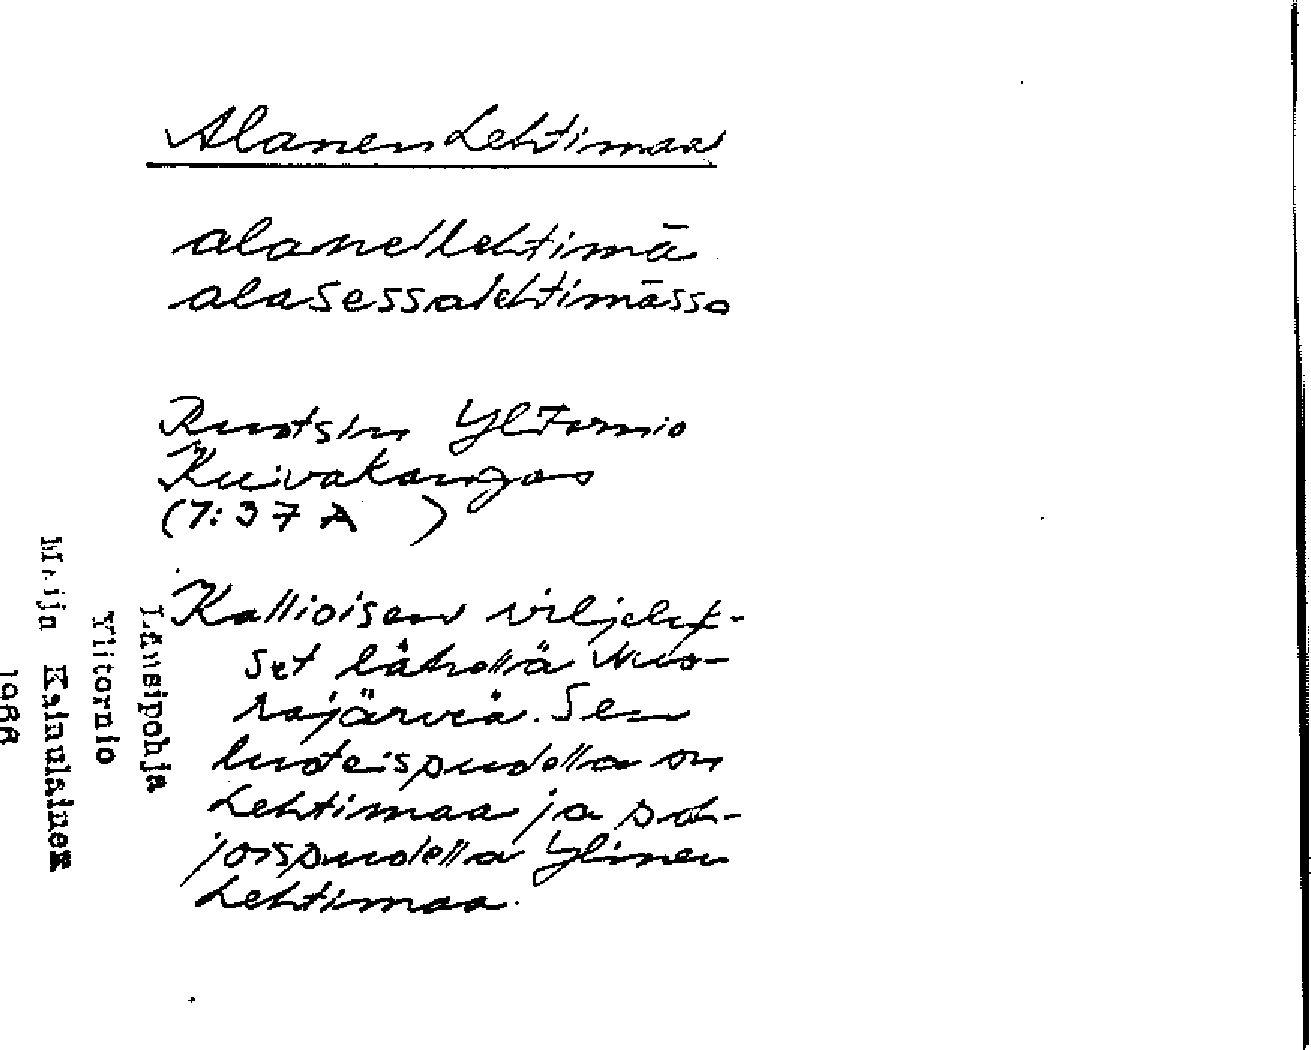 Alanen Lehtimaa
alanellehtimā
alasessalehtimāssa
Ruotsin Ylitornio
Kuivakangas
(7:37 A )
Kallioisen viljelyk-
set lähellä Nuo-
rajärveä. Sen
luoteispuolella on
Lehtimaa ja poh-
joispuolella Ylinen
Lehtimaa.
Länsipohja
Ylitornio
Maija Kainulainen
1988